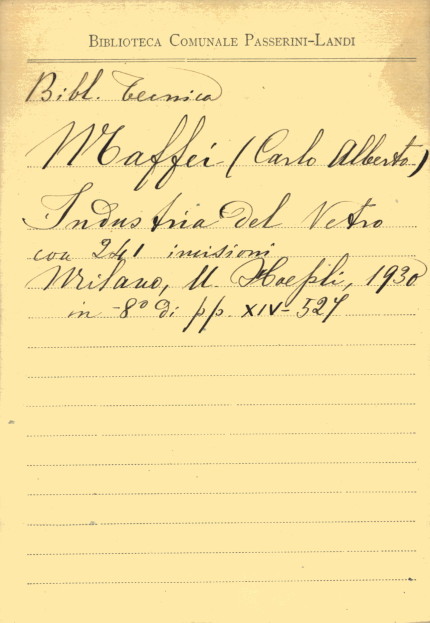 Biblioteca Comunale Passerini-Landi
Bibl. Tecnica
Maffei (Carlo Alberto)
Industria del Vetro
con 241 incisioni
Milano, U. Hoepli, 1930
in -8° di pp. XIV-527